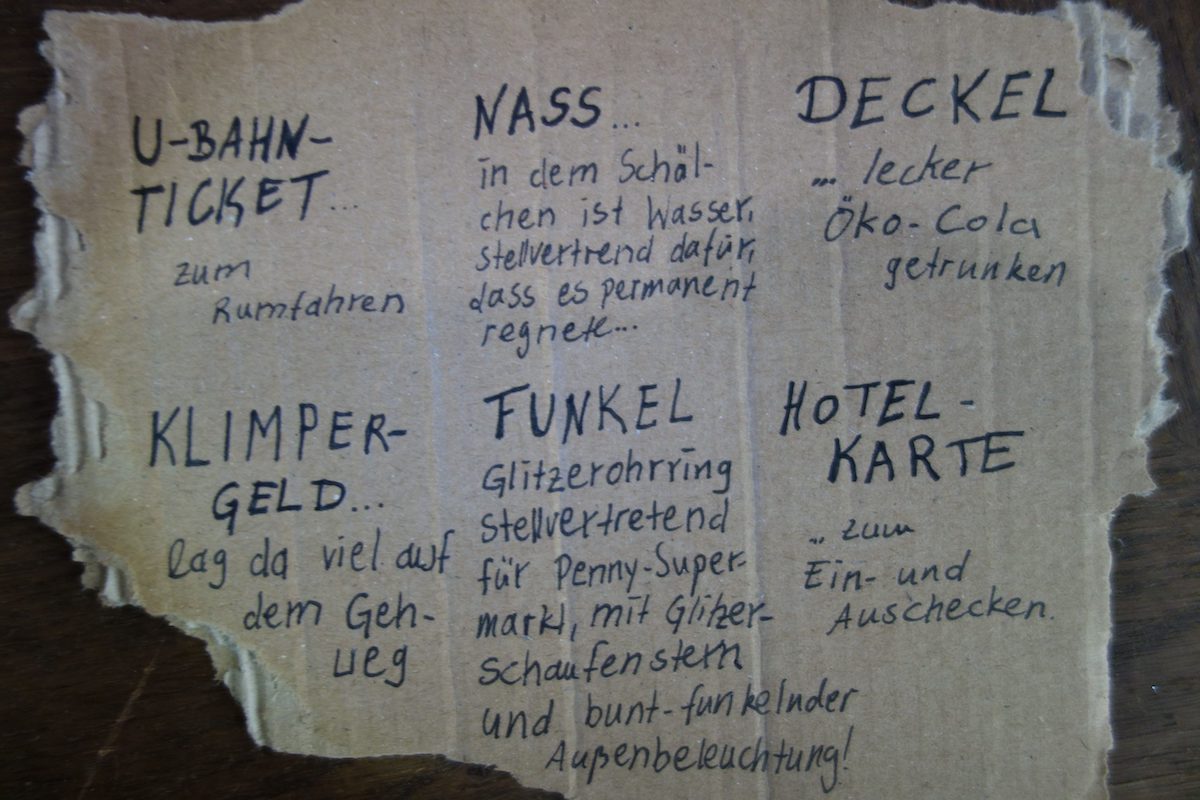 U-BAHN-
TICKET...
zum
Rumfahren
NASS...
in dem Schäl-
chen ist Wasser,
stellvertrend dafür,
dass es permanent
regnete...
DECKEL
... lecker
Öko-Cola
getrunken
KLIMPER-
GELD...
lag da viel auf
dem Geh-
weg
FUNKEL
Glitzerohrring
stellvertretend
für Penny-Super-
markt, mit Glitzer-
schaufenstern
und bunt-funkelnder
Außenbeleuchtung!
HOTEL-
KARTE
... zum
Ein- und
Auschecken.